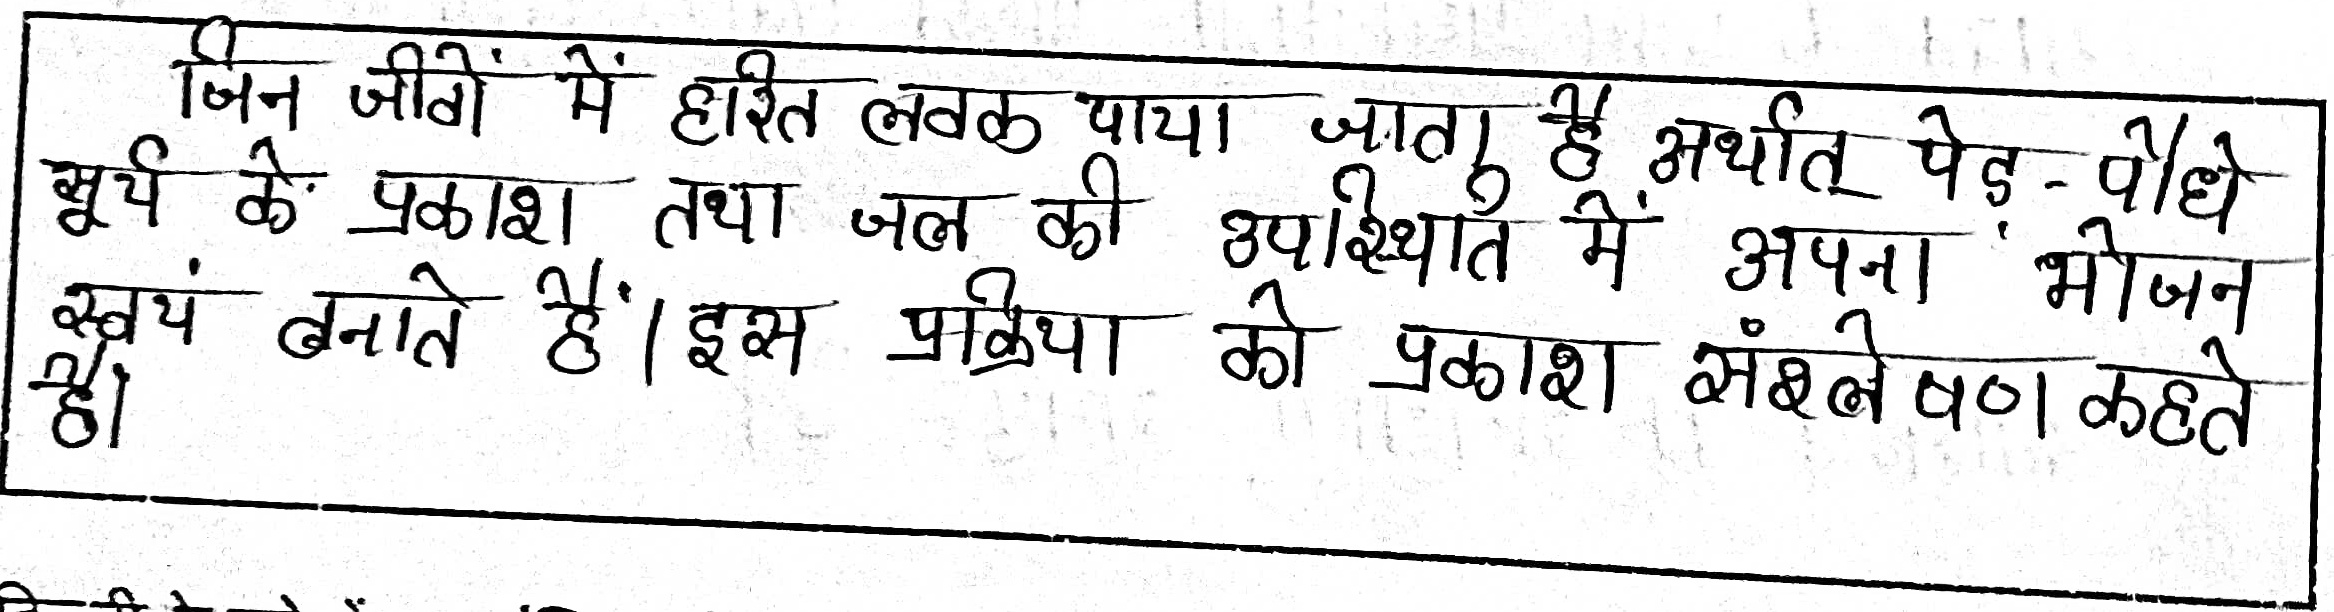 जिन जीवों में हरित लवक पाया जाता है अर्थात् पेड़-पौधे
सूर्य के प्रकाश तथा जल की उपस्थिति में अपना भोजन
स्वयं बनाते हैं। इस प्रक्रिया को प्रकाश संश्लेषण कहते
है।